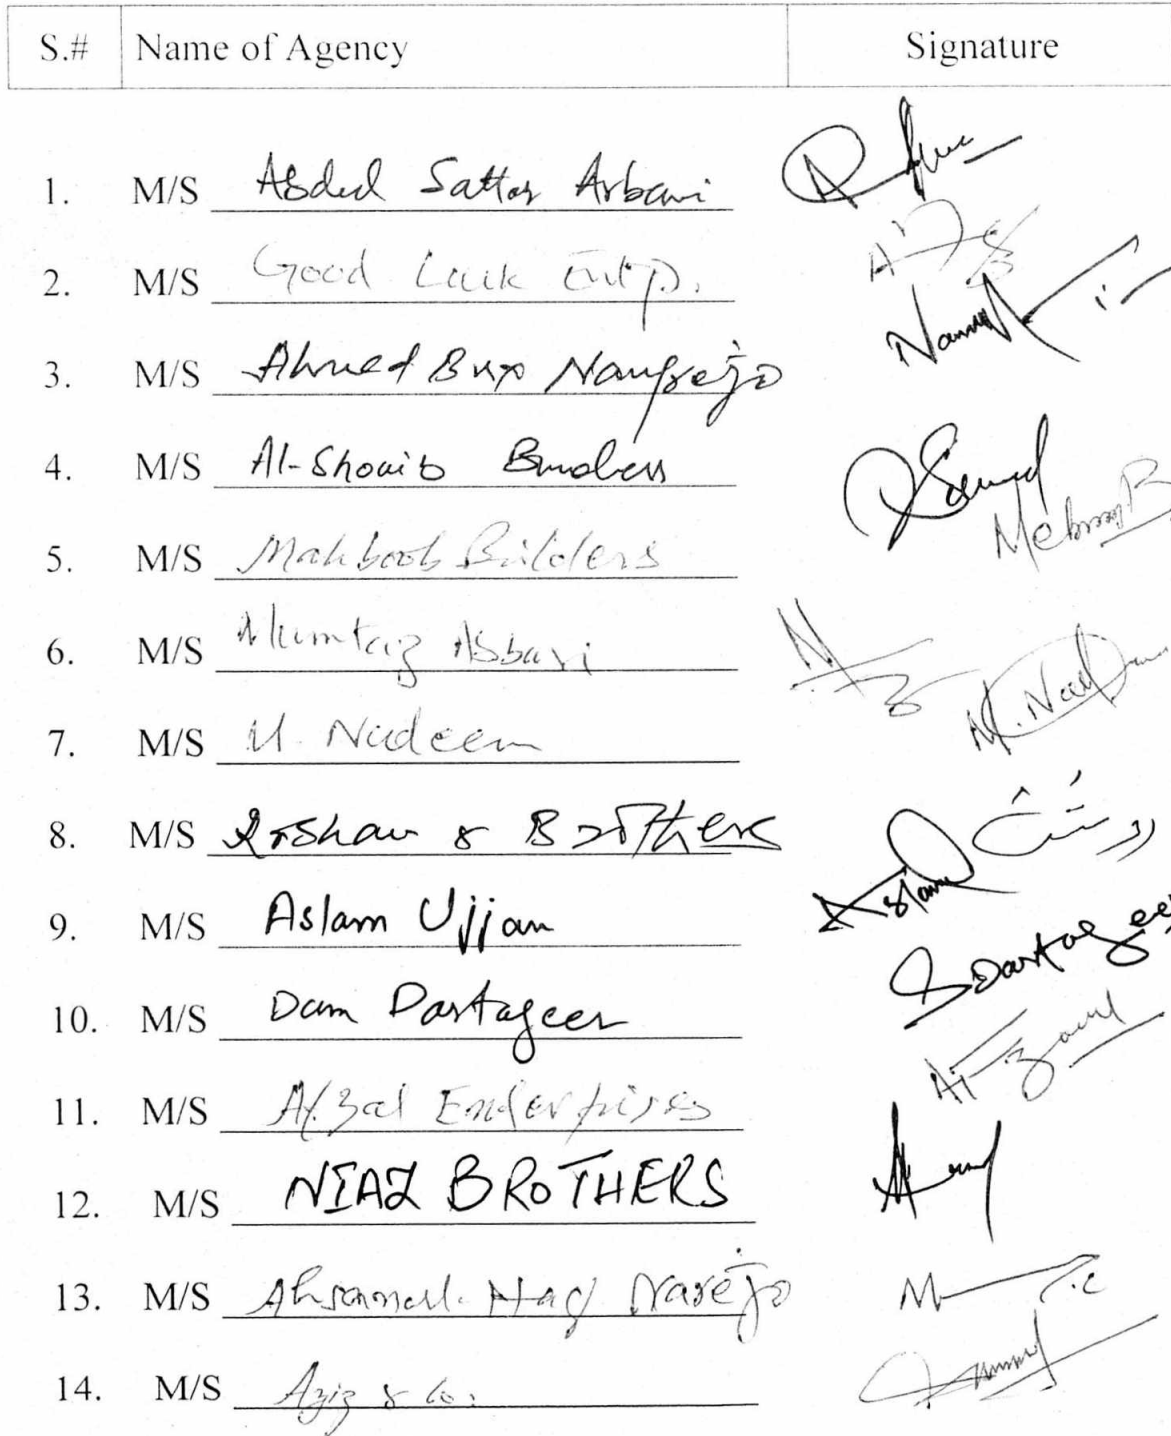 S.# Name of Agency Signature
1. M/S Abdul Sattar Arbani
2. M/S Good Luck Entp.
3. M/S Ahmed Bux Nangrejo
4. M/S Al-Shoaib Builders
5. M/S Mahboob Builders
6. M/S Mumtaz Abbasi
7. M/S M. Nadeem M. Nadeem
8. M/S Roshan & Brothers روشن
9. M/S Aslam Ujjan Aslam
10. M/S Dam Dastageer Dastageer
11. M/S Afzal Enterprises Afzaal
12. M/S NIAZ BROTHERS
13. M/S Ahsanul Haq Narejo
14. M/S Aziz & Co.